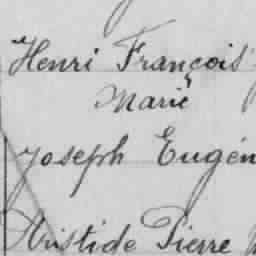 Henri François
Marie
Joseph Eugén
Aristide Pierre